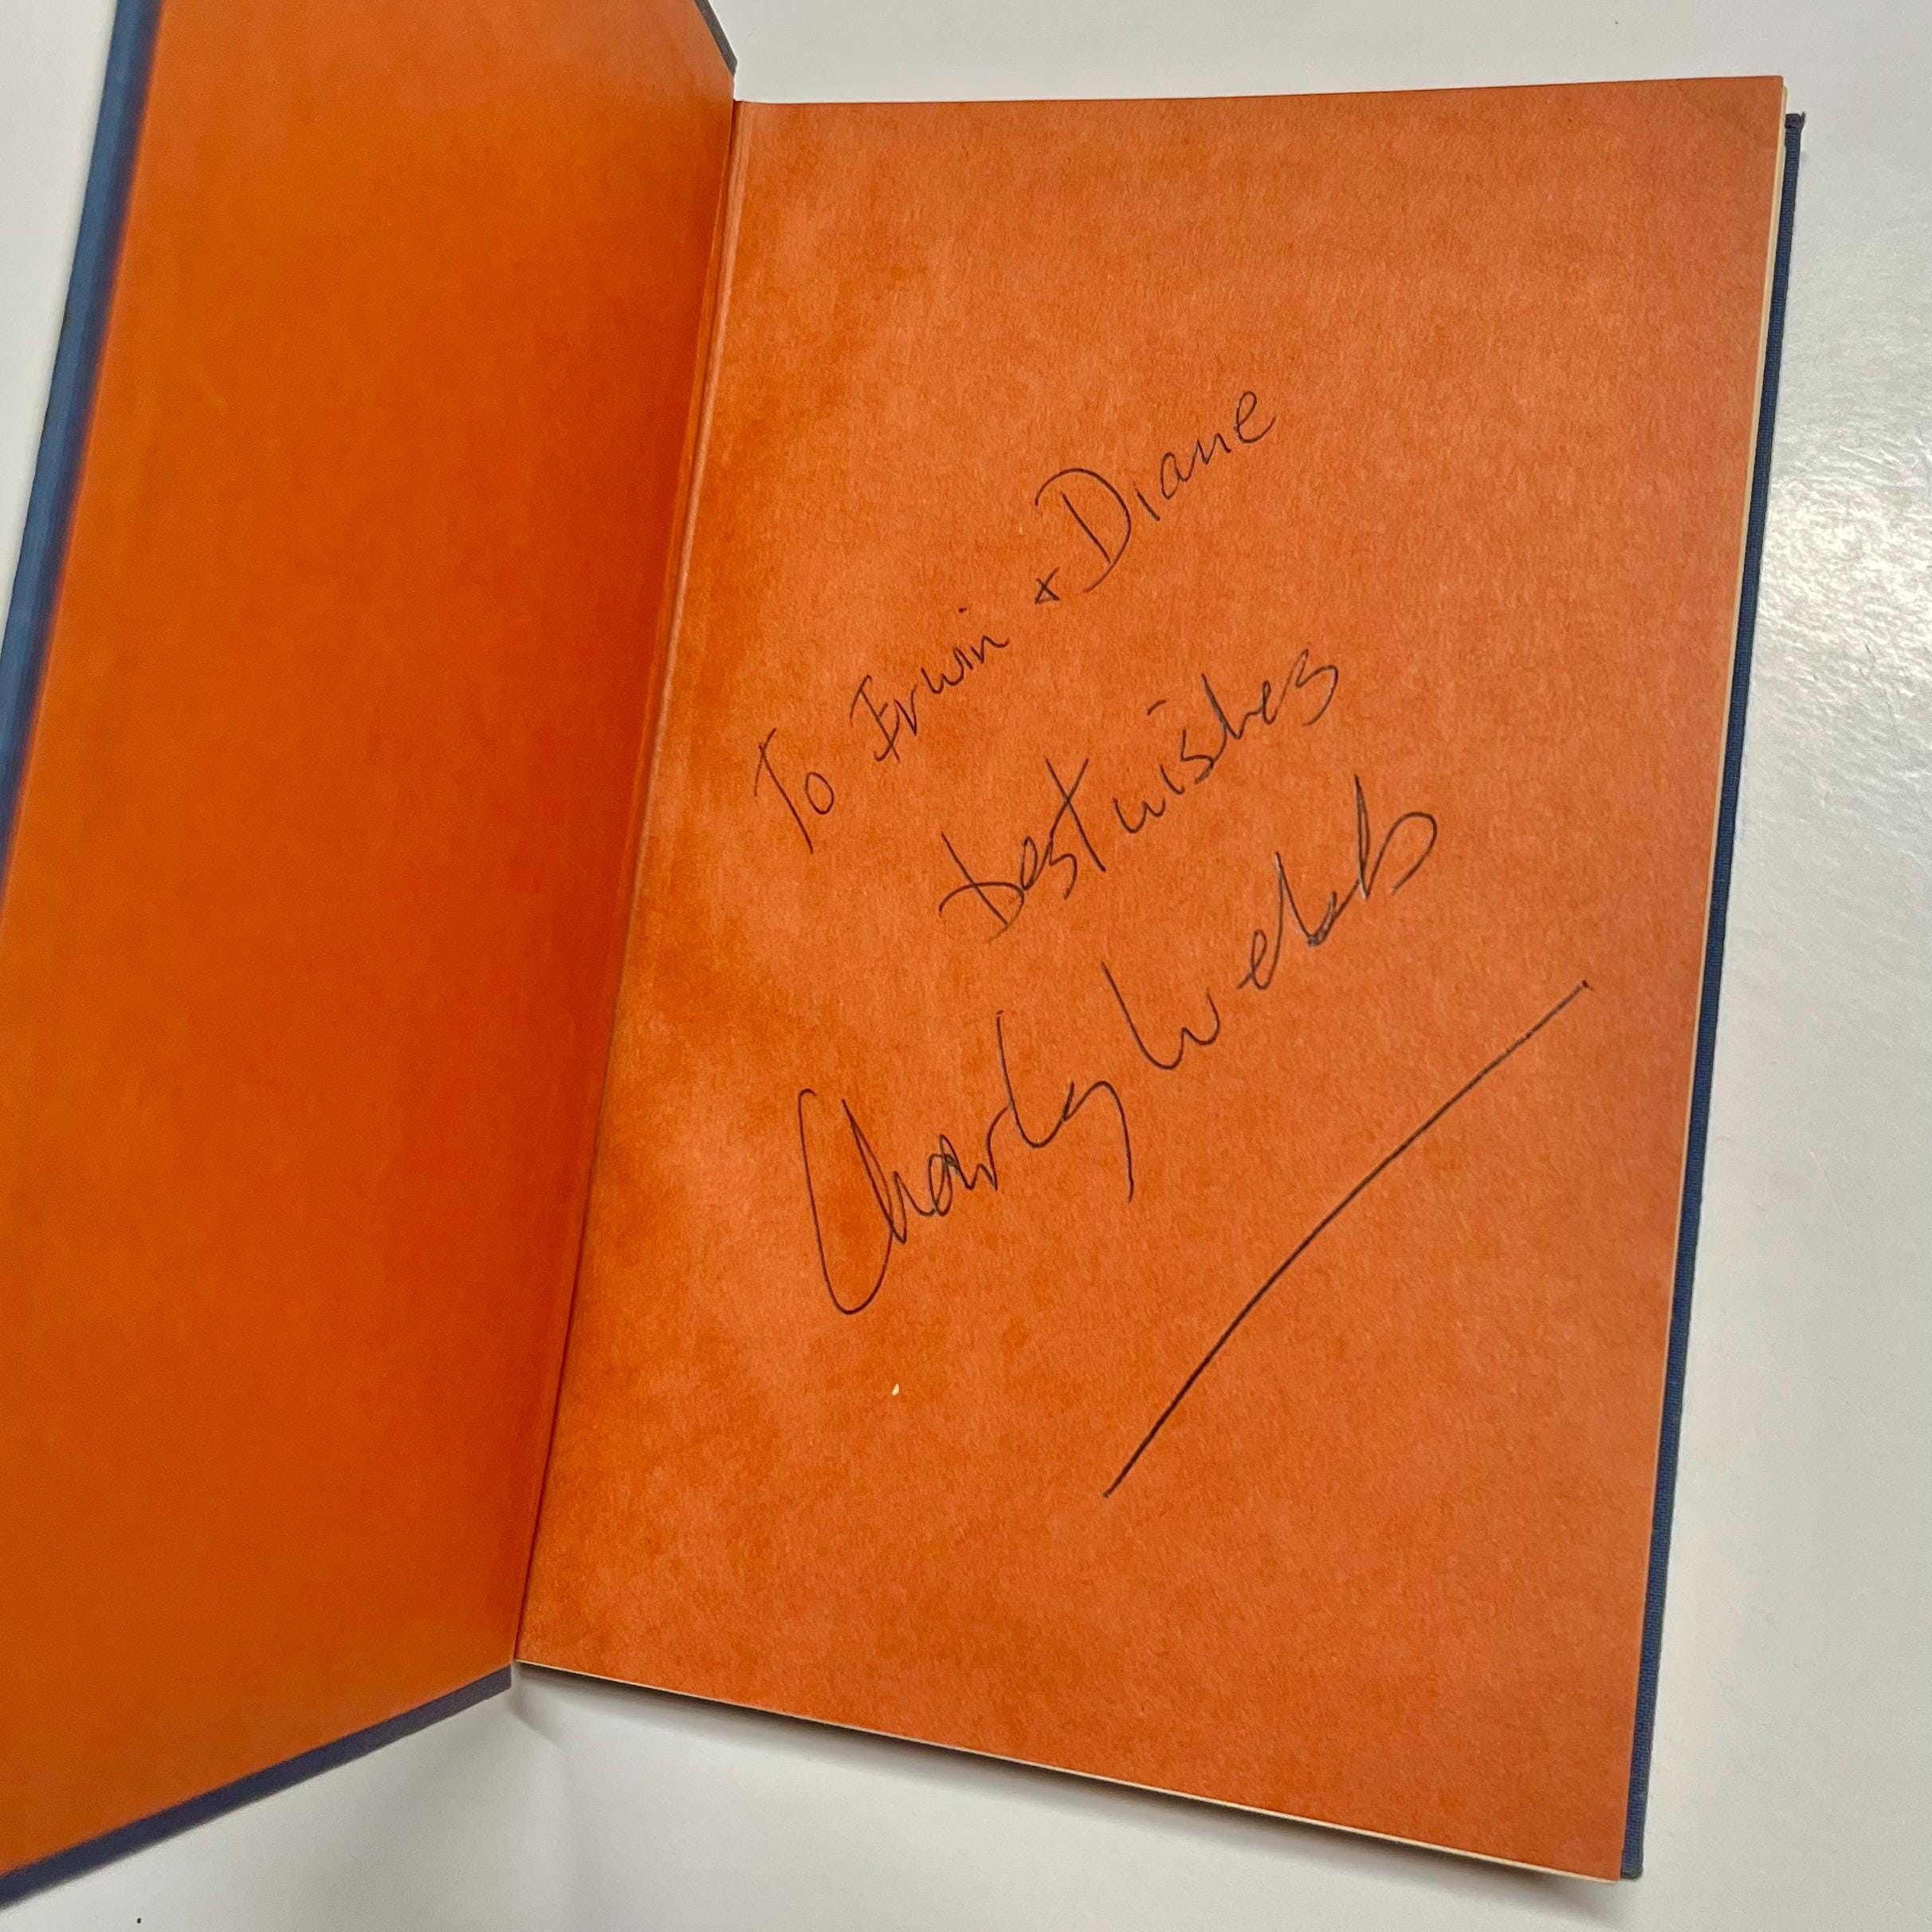 To Erwin & Diane
Best wishes
Charly Webb